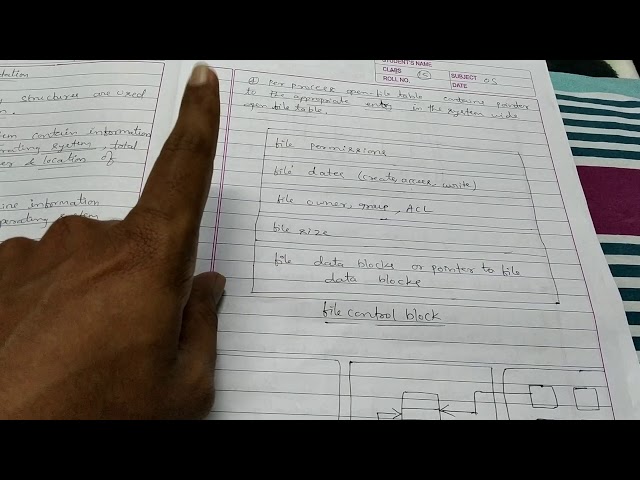 tation
structures are used
n.
em contain information
rating system, total
er & location of
ine information
perating system
STUDENT'S NAME
CLASS
ROLL NO. 5
SUBJECT OS
DATE
④ Per process open-file table contains pointer
to the appropriate entry in the system wide
open file table.
file permissions
file dates (create, access, write)
file owner, group, ACL
file size
file data blocks or pointer to file
data blocks
file control block